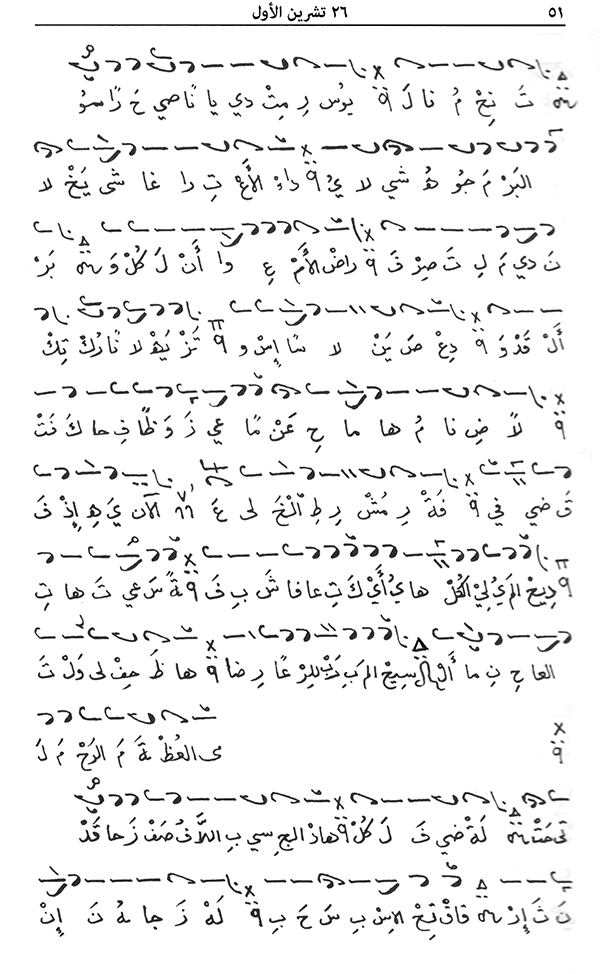 ٥١ ٢٦ تشرين الأول
تَ نِعْ مُ نا لَ يوُس رِ مِتْ دي يا نًا صي حَ زًا سوُ
البَرْ مَ جوُ هُ شي لا يُ داءِ الأَعْ تِ دا غا شى يَخْ لا
نَ دي مَ لِ تَ صِرْ فَ راضَ الأَمْ عِ وا أَنْ لَ كُلْ وَ بَرْ
أَلْ قَدْ وَ دِعْ صَ يَنْ لا سًا إِسْ و تَزْ يَهْ لا نارُكْ تِكْ
لًا ضِ نا مُ ها ما حِ عَنْ مًا عي زَ وَ ظًا فِ حا كَ نَتْ
قَ ضي في فَةْ رِ مُشْ رِ طِ الْخَ لى عَ الآن يَ هِ إِذْ فَ
دِيعْ المَ يُ لِيْ الكُلْ ها يُ أَيْ كَ تِ عا فا شَ بِ فَ ةً سَ عي تَ ها تِ
العا جِ نِ ما أَلْ سيحْ المَ بَ رَبْ لِلرْ عًا رِ ضا ها ظَ حِفْ لى وَلْ تَ
مى العُظْ ةَ مَ الرَحْ مَ لَ
لَةْ ضي فَ لَ كُلْ هاذ الحِ سي بِ اللَّا فُ صَفْ زَ حا قَدْ
نَ ثَ إِرْ فاقْ تِعْ الإِسْ بِ سَ حَ بِ لَهْ زَ جا هُ نَ إِنْ